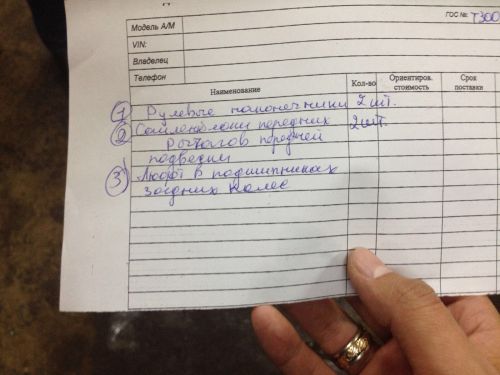 ГОС №: Т300
Модель А/М
VIN:
Владелец
Телефон
Наименование Кол-во Ориентиров. стоимость Срок поставки
1 Рулевые наконечники 2 шт.
2 Сайлентблоки передних 2 шт.
Рычагов передней
подвески
3 Люфт в подшипниках
задних колес